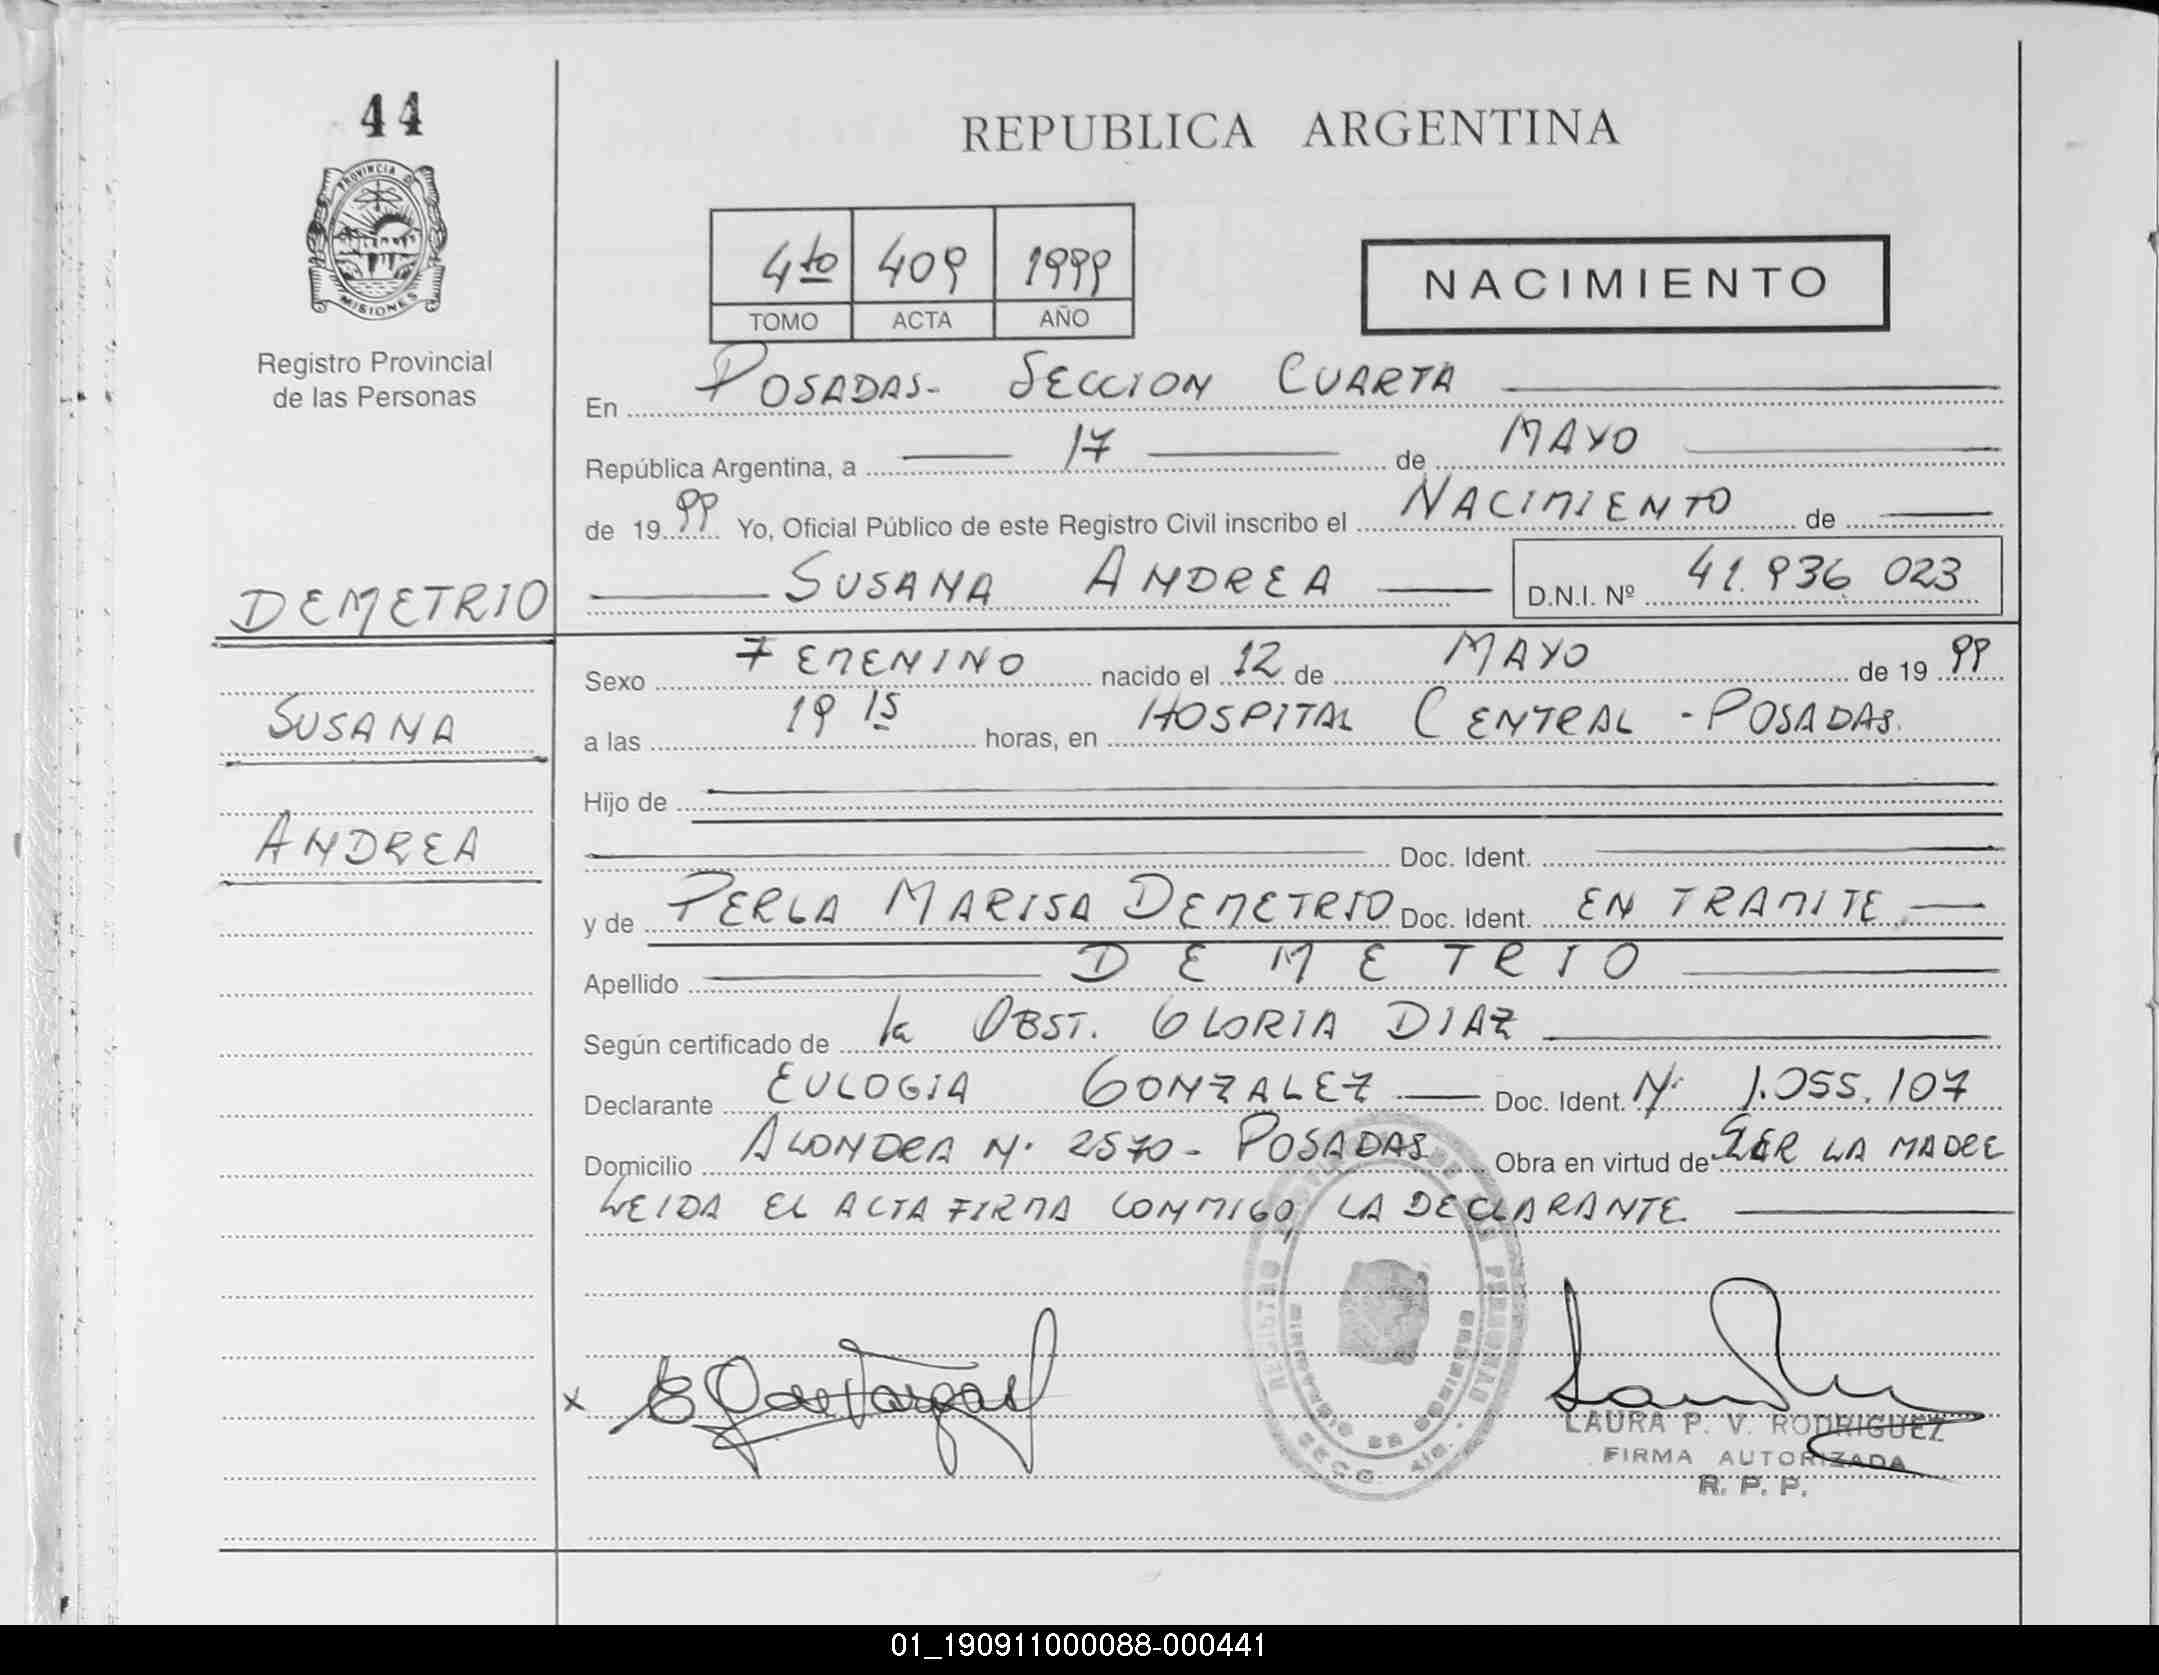 44
PROVINCIA D
MISIONES
Registro Provincial
de las Personas
DEMETRIO
SUSANA
ANDREA
REPUBLICA ARGENTINA
4to 409 1999
TOMO ACTA AÑO
NACIMIENTO
En POSADAS- SECCION CUARTA
República Argentina, a 17 de MAYO
de 1999 Yo, Oficial Público de este Registro Civil inscribo el NACIMIENTO de
SUSANA ANDREA D.N.I. Nº 41.936 023
Sexo FEMENINO nacido el 12 de MAYO de 1999
a las 19 15 horas, en HOSPITAL CENTRAL - POSADAS.
Hijo de
Doc. Ident.
y de PERLA MARISA DEMETRIO Doc. Ident. EN TRAMITE
Apellido DEMETRIO
Según certificado de la OBST. GLORIA DIAZ
Declarante EULOGIA GONZALEZ Doc. Ident. Nº 1.055.107
Domicilio ALONDRA Nº 2570 - POSADAS Obra en virtud de SER LA MADRE
LEIDA EL ACTA FIRMA CONMIGO LA DECLARANTE
X
LAURA P. V. RODRIGUEZ
FIRMA AUTORIZADA
R. P. P.
01_190911000088-000441